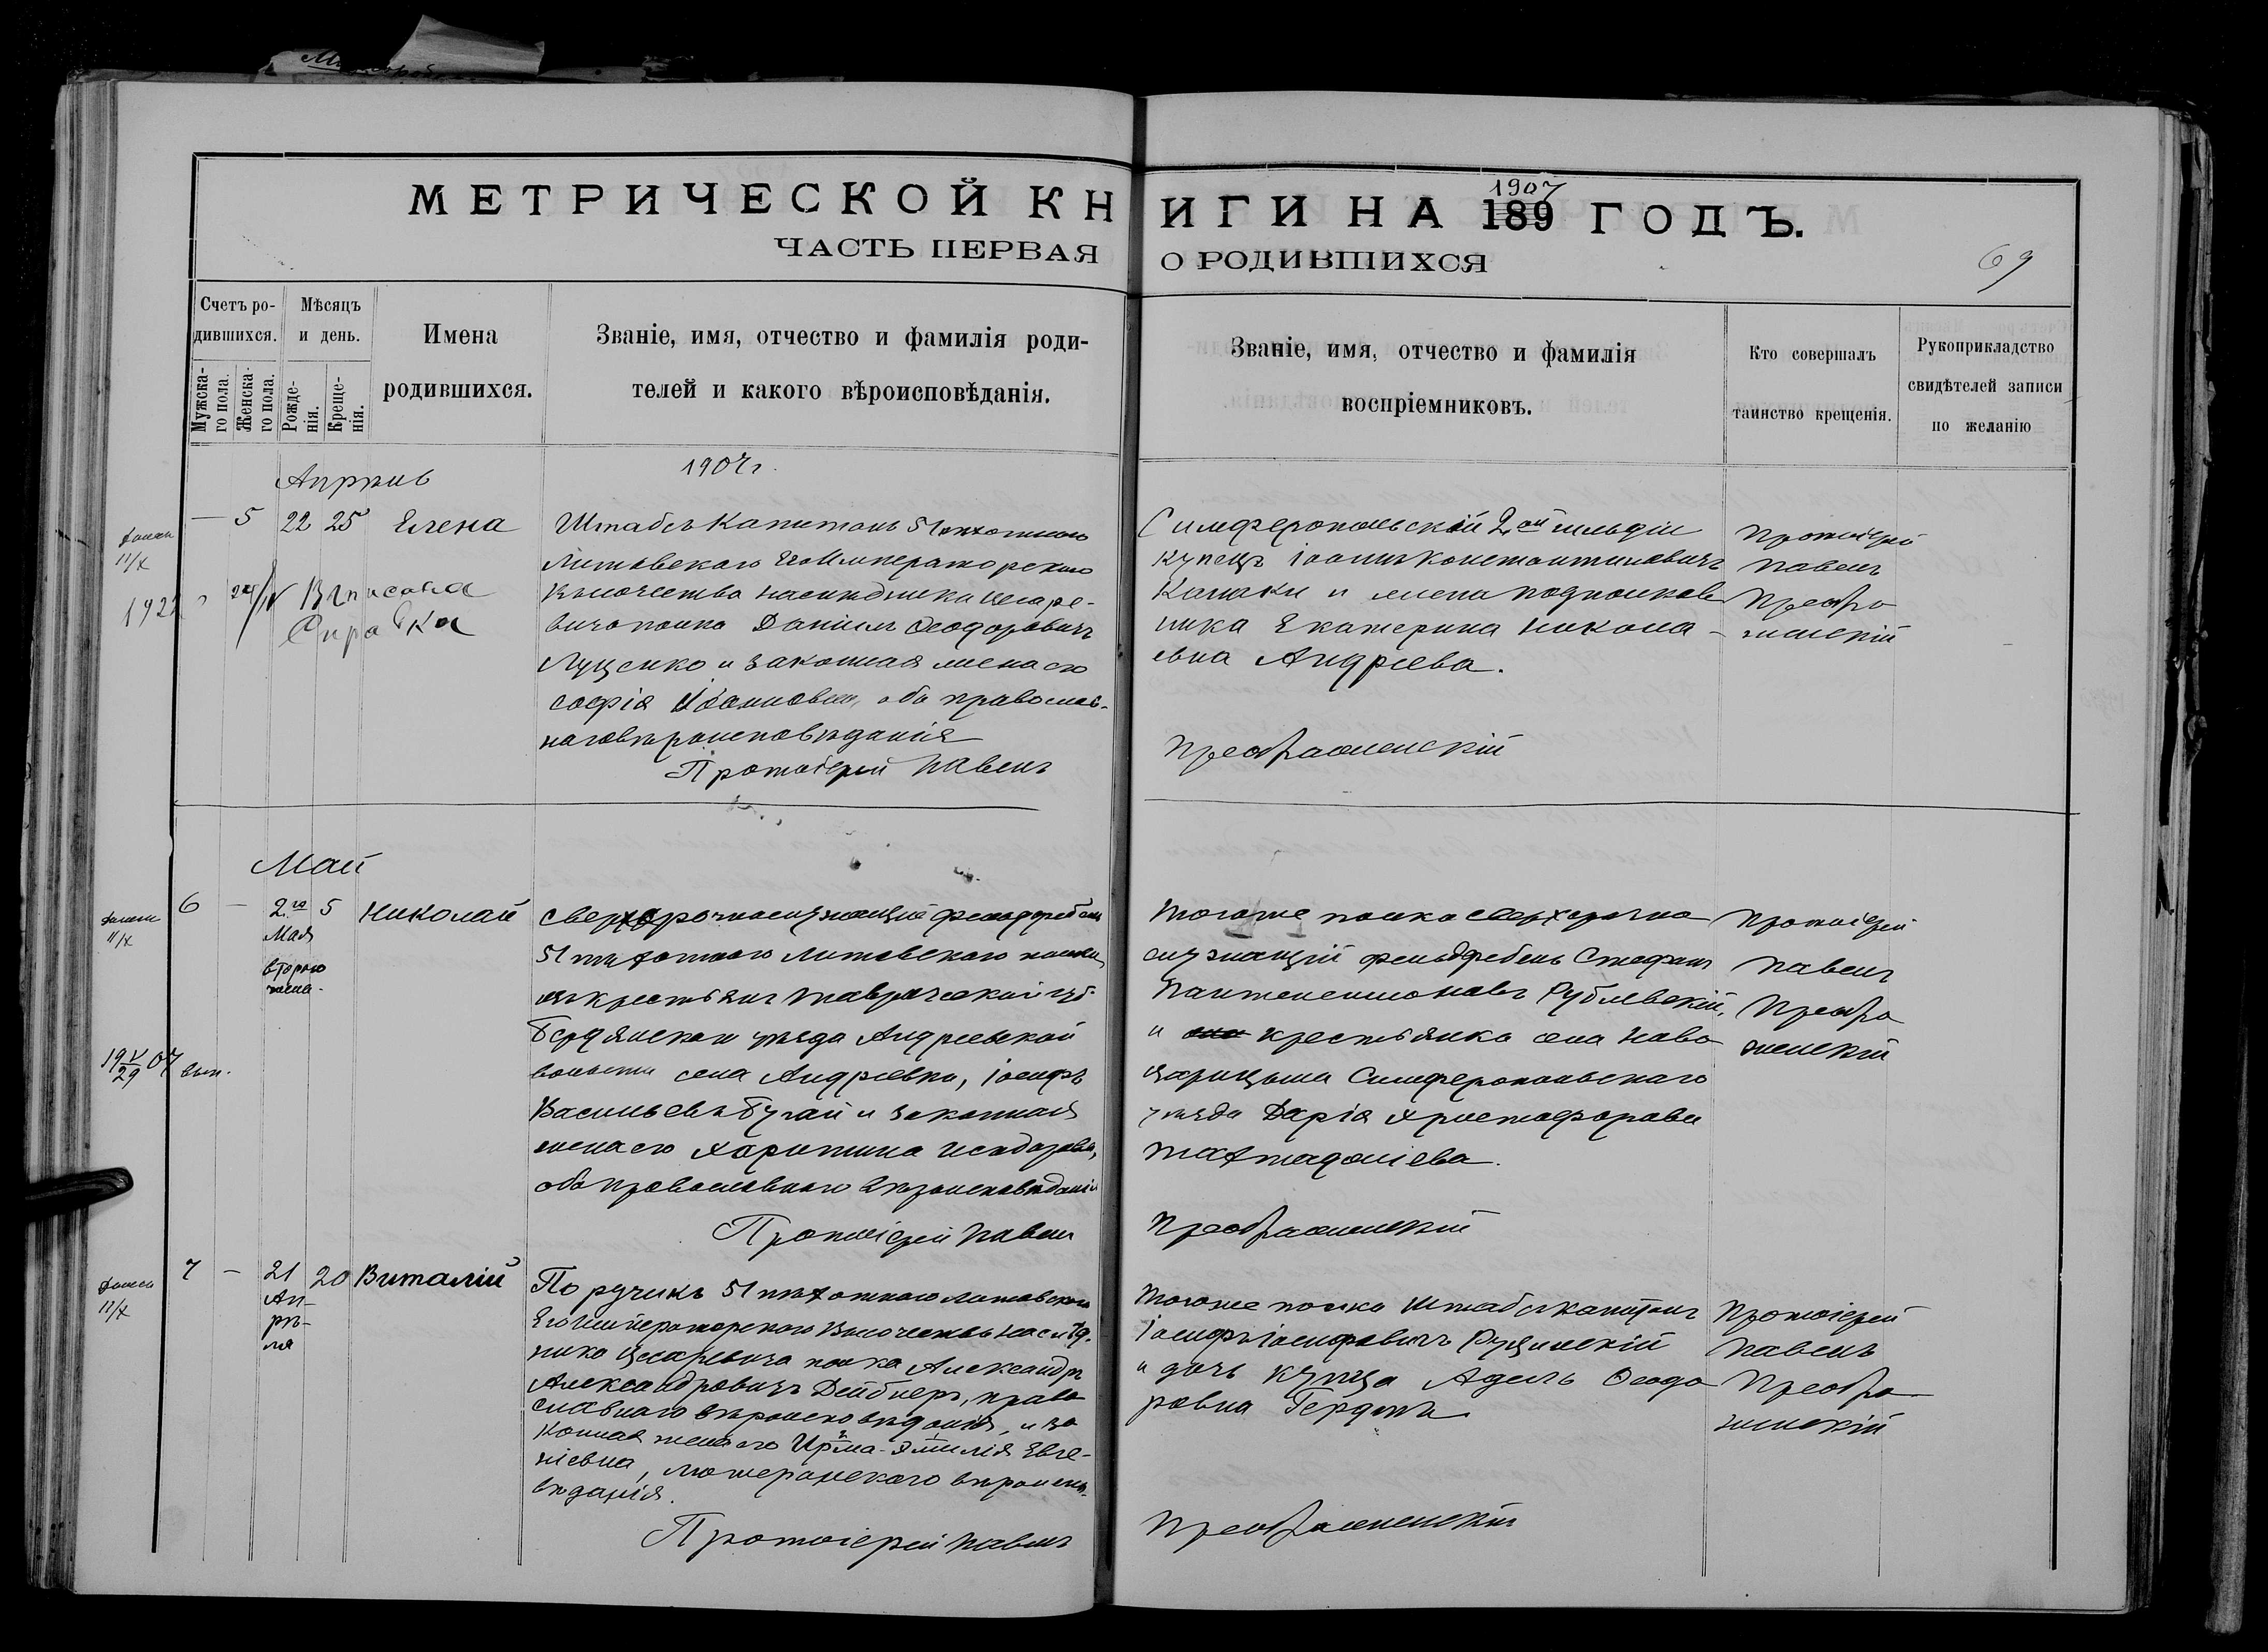 МЕТРИЧЕСКОЙ КНИГИ НА 189 ГОДЪ.
1907
ЧАСТЬ ПЕРВАЯ О РОДИВШИХСЯ
69
Счетъ ро-
дившихся.
Мужска-
го пола.
Женска-
го пола.
Мѣсяцъ
и день.
Рожде-
нія.
Креще-
нія.
Имена
родившихся.
Званіе, имя, отчество и фамилія роди-
телей и какого вѣроисповѣданія.
Званіе, имя, отчество и фамилія
воспріемниковъ.
Кто совершалъ
таинство крещенія.
Рукоприкладство
свидѣтелей записи
по желанію
Апрѣль
1907 г.
— 5 22 25 Елена
11/X
Выписана
Справка
Штабсъ Капитанъ 51 пѣхотнаго
Литовскаго Его Императорскаго
Высочества Наслѣдника Цесаре-
вича полка Даніилъ Ѳеодоровичъ
Луценко и законная жена его
Софія Ивановна, оба православ-
наго вѣроисповѣданія
Протоіерей Павелъ
Симферопольскій 2ой гильдіи
купецъ Іоаннъ Константиновичъ
и жена подполков-
ника Екатерина Никола-
евна Андреева.
Преображенскій
Протоіерей
Павелъ
Преобра
женскій
Май
6 — 2го 5 Николай
Мая
второго
11/X
19 V/29 07 вып.
Сверхсрочнослужащій фельдфебель
51 пѣхотнаго Литовскаго полка,
изъ крестьянъ Таврической губ.
Бердянскаго уѣзда Андреевской
волости села Андреевки, Іосифъ
Васильевъ Бугай и законная
жена его Харитина Исидорова,
оба православнаго вѣроисповѣданія
Протоіерей Павелъ
Тогоже полка сверхсрочно
служащій фельдфебель Стефанъ
Пантелеимоновъ Рублевскій,
и крестьянка села Ново
Царицына Симферопольскаго
уѣзда Дарія Христофорова
Преображенскій
Протоіерей
Павелъ
Преобра
женскій
7 — 21 20 Виталій
Ап-
рѣ-
ля
11/X
Поручикъ 51 пѣхотнаго Литовскаго
Его Императорскаго Высочества Наслѣд-
ника Цесаревича полка Александръ
Александровичъ Дейбнеръ, право
славнаго вѣроисповѣданія, и за
конная жена его Ирма-Эмилія Евге-
ніевна, лютеранскаго вѣроиспо-
вѣданія.
Протоіерей Павелъ
Тогоже полка Штабсъ капитанъ
Іосифъ Іосифовичъ
и дочь купца Адель Ѳеодо
ровна
Преображенскій
Протоіерей
Павелъ
Преобра
женскій